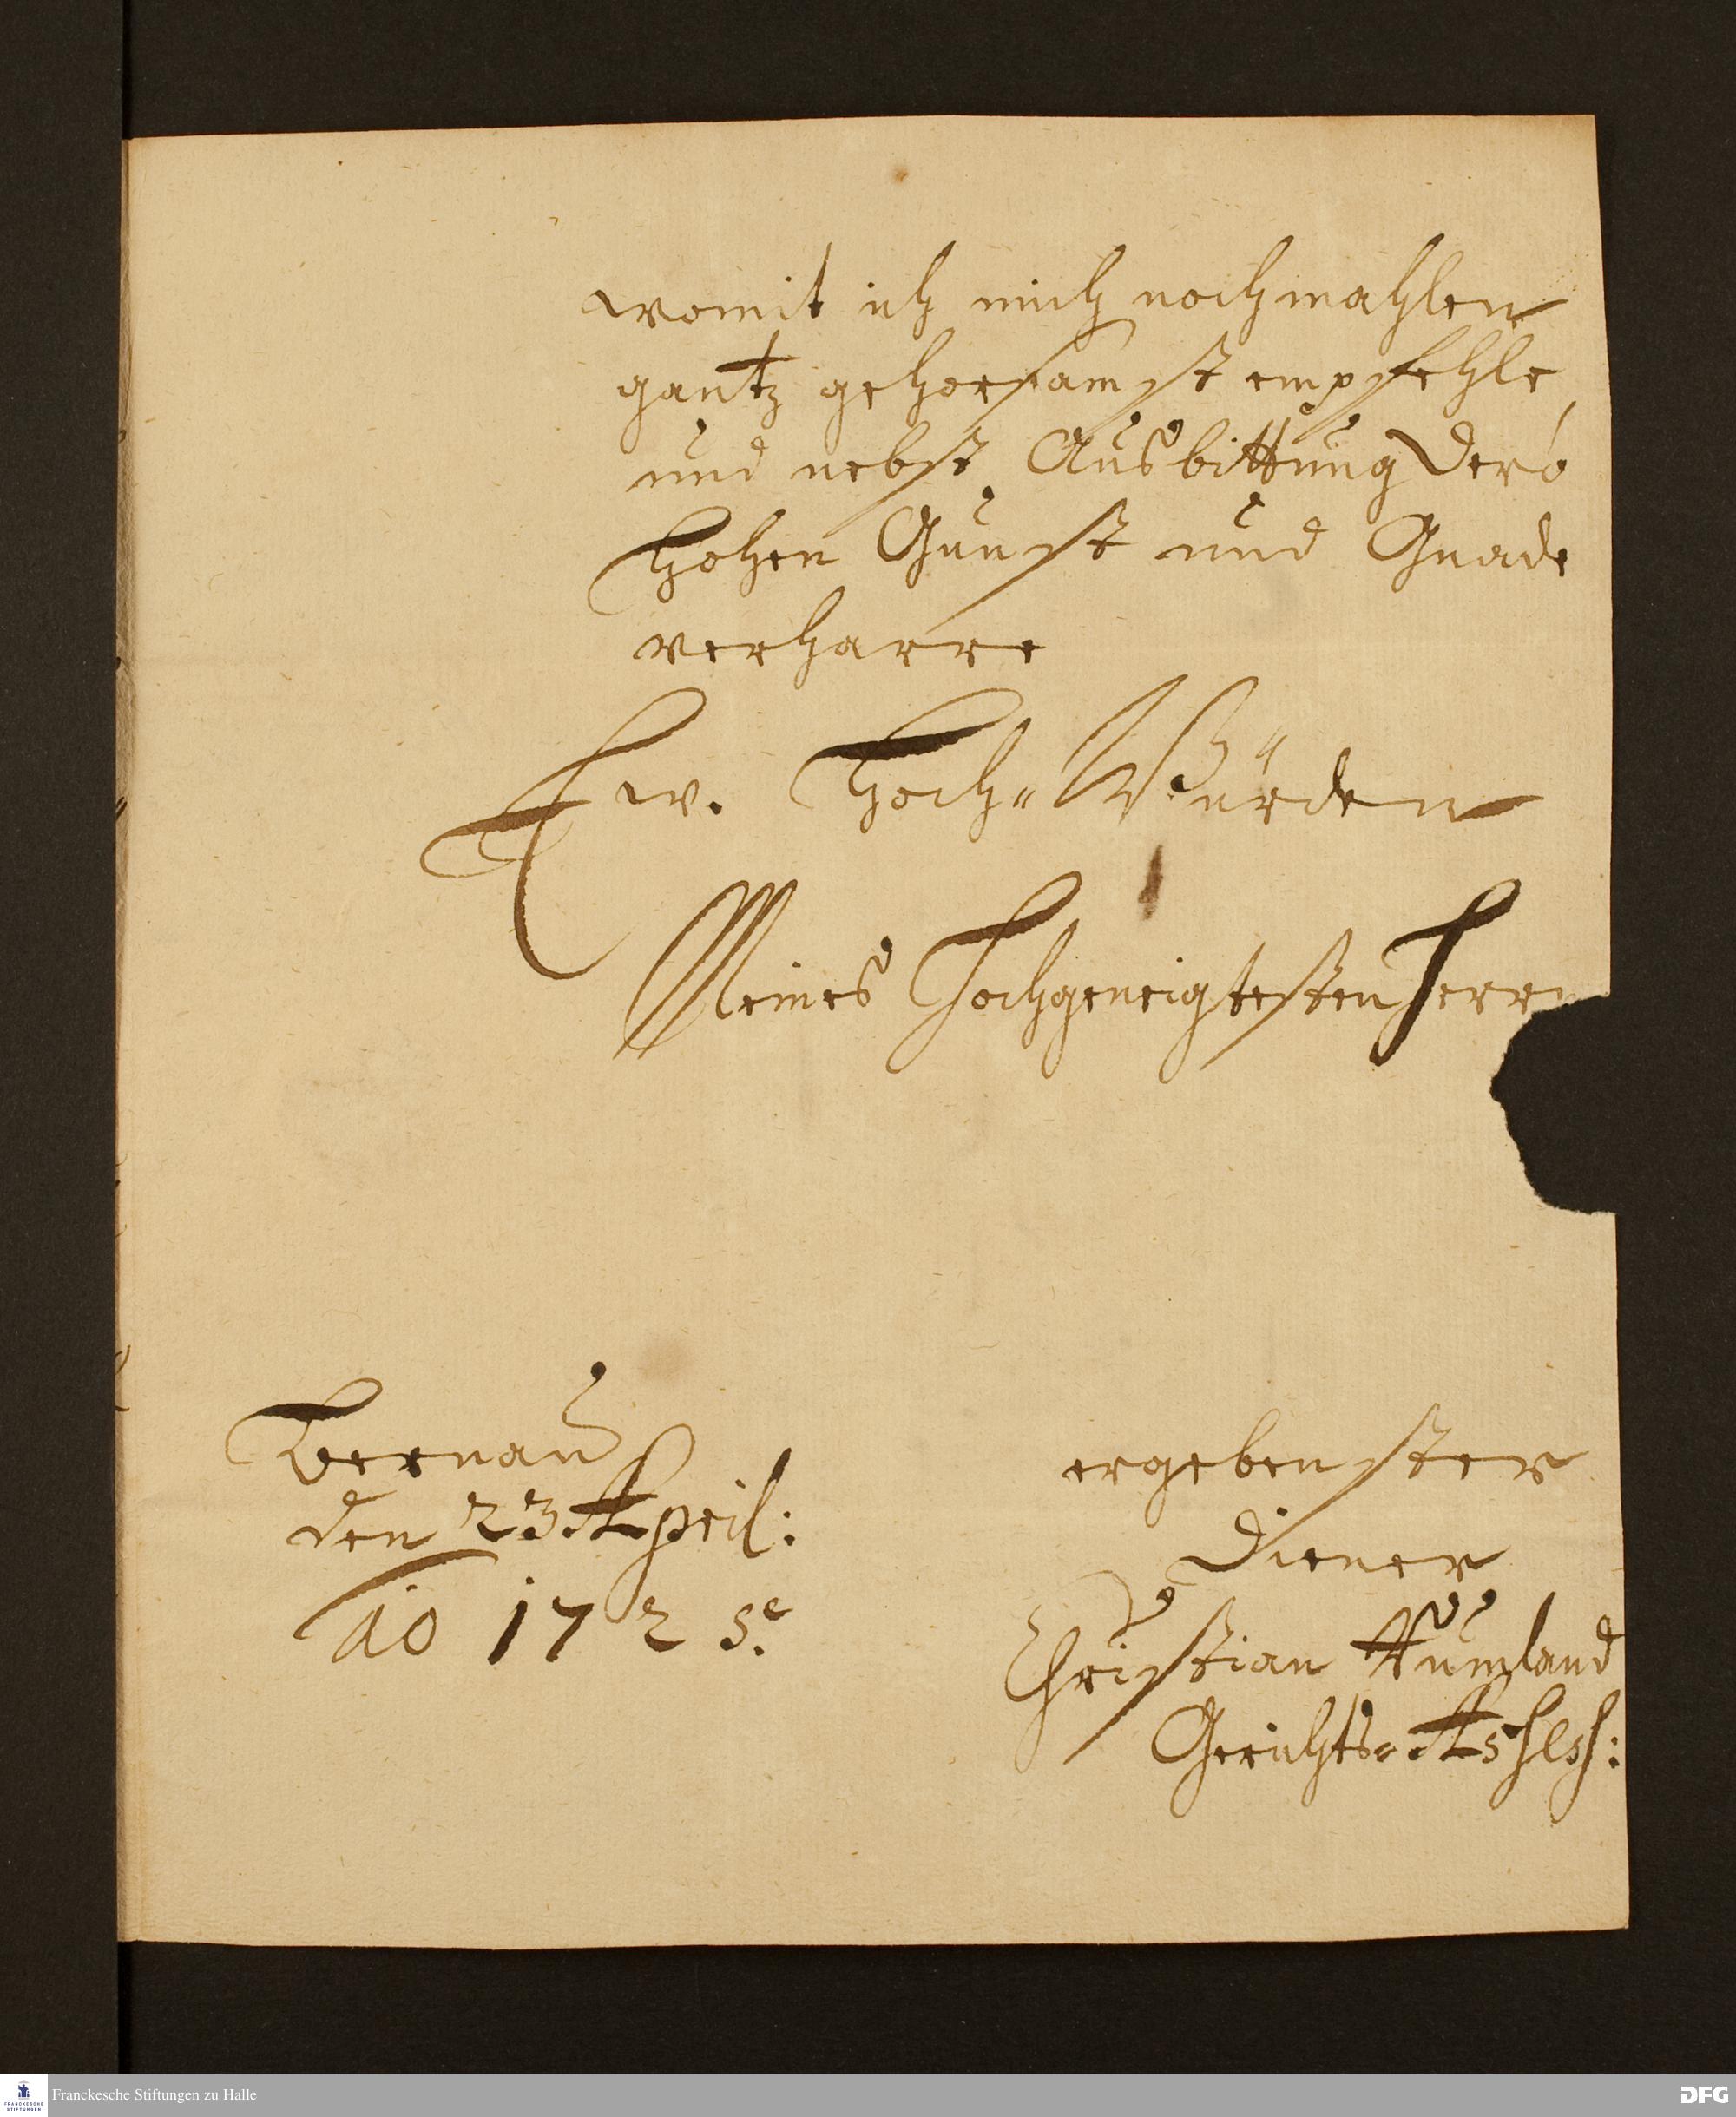 womit ich mich nochmahlen
gantz gehorsamst empfehle,
und nebst Ausbittung Dero
Hohen Gunst und Gnade
verharre
Ew. Hoch= Würden
Meines Hochgeneigtesten Herrn
Bernau
den 23 April:
Ao 1725.
ergebenster
Diener
Christian
Gerichts=
Franckesche Stiftungen zu Halle
DFG
FRANCKESCHE
STIFTUNGEN